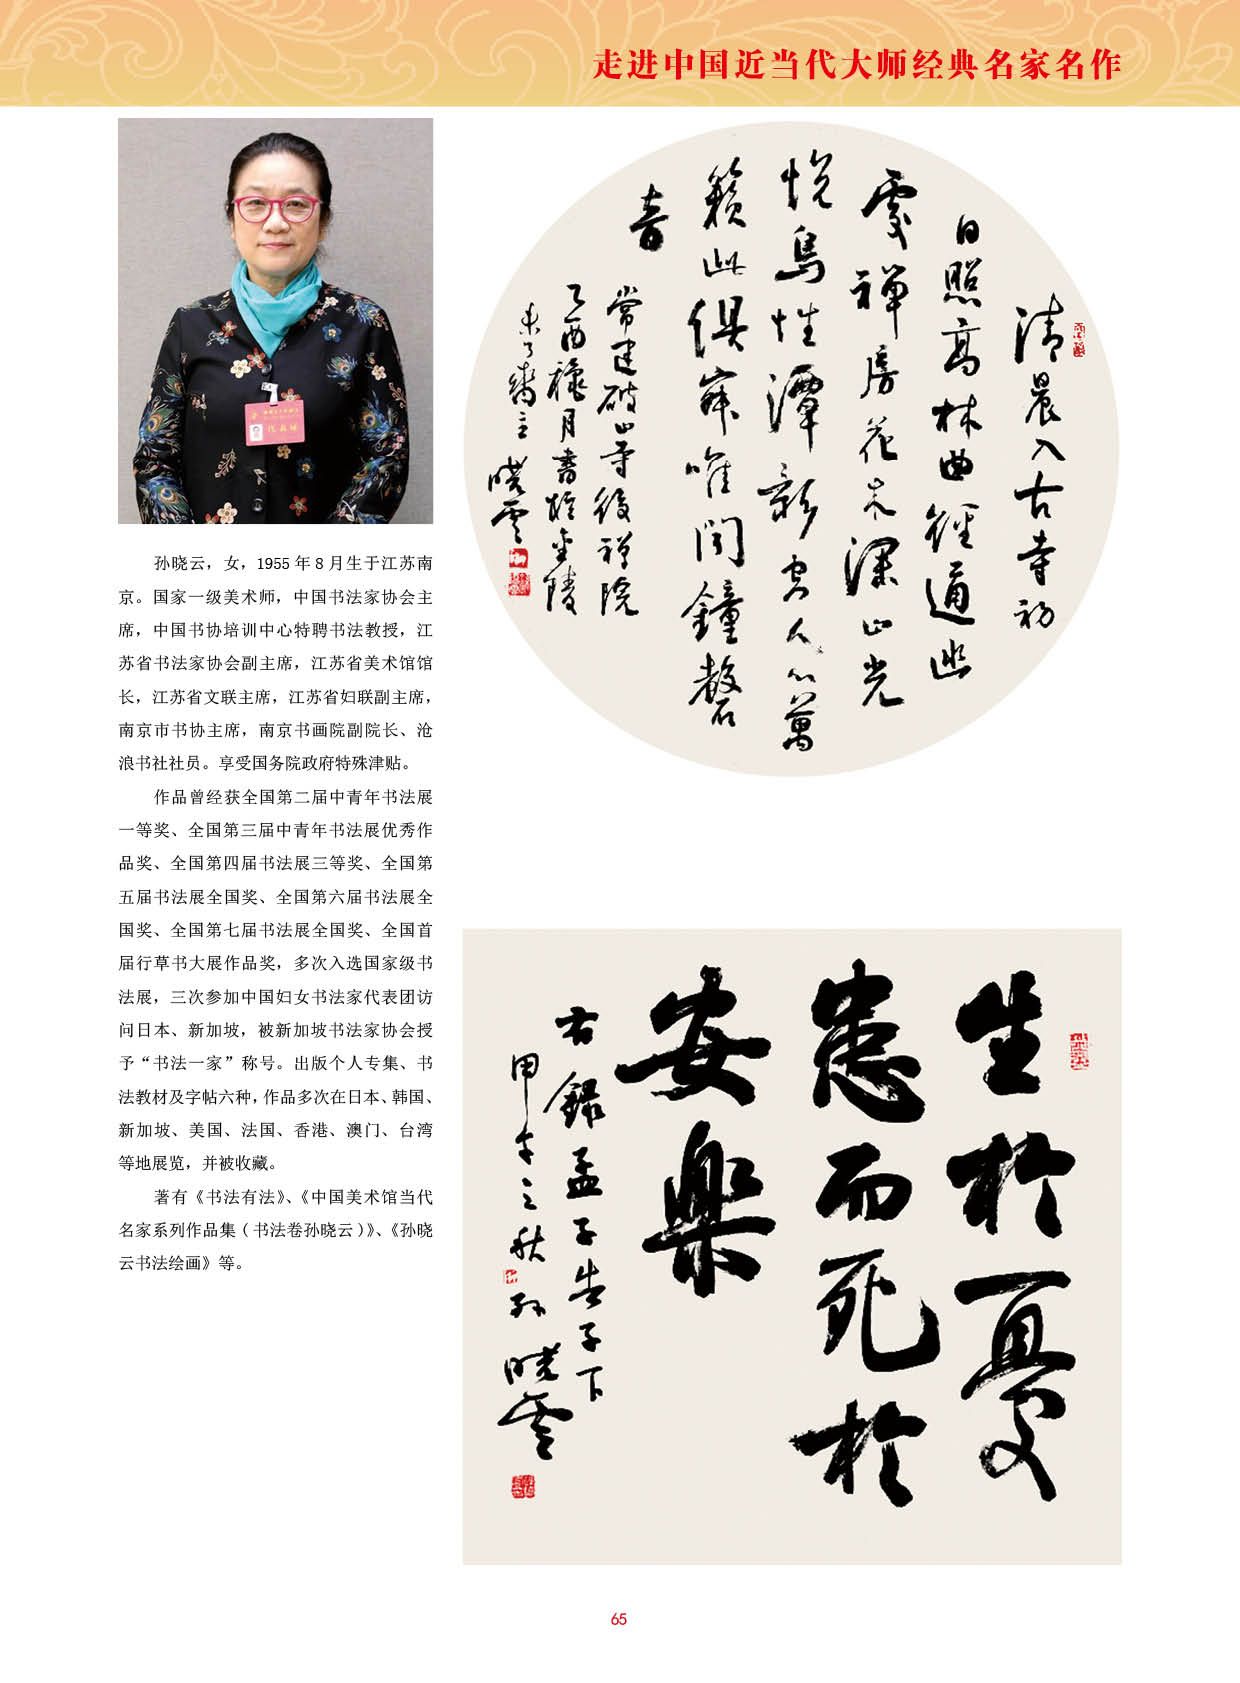 走进中国近当代大师经典名家名作
孙晓云，女，1955年8月生于江苏南
京。国家一级美术师，中国书法家协会主
席，中国书协培训中心特聘书法教授，江
苏省书法家协会副主席，江苏省美术馆馆
长，江苏省文联主席，江苏省妇联副主席，
南京市书协主席，南京书画院副院长、沧
浪书社社员。享受国务院政府特殊津贴。
作品曾经获全国第二届中青年书法展
一等奖、全国第三届中青年书法展优秀作
品奖、全国第四届书法展三等奖、全国第
五届书法展全国奖、全国第六届书法展全
国奖、全国第七届书法展全国奖、全国首
届行草书大展作品奖，多次入选国家级书
法展，三次参加中国妇女书法家代表团访
问日本、新加坡，被新加坡书法家协会授
予“书法一家”称号。出版个人专集、书
法教材及字帖六种，作品多次在日本、韩国、
新加坡、美国、法国、香港、澳门、台湾
等地展览，并被收藏。
著有《书法有法》、《中国美术馆当代
名家系列作品集（书法卷孙晓云）》、《孙晓
云书法绘画》等。
清晨入古寺初
日照高林曲径通幽
处禅房花木深山光
悦鸟性潭影空人心萬
籁此俱寂唯闻鐘磬
音
常建破山寺後禅院
乙酉穐月書於金陵
主晓雲
生於憂
患而死於
安樂
右録孟子告子下
甲午之秋孙晓雲
65